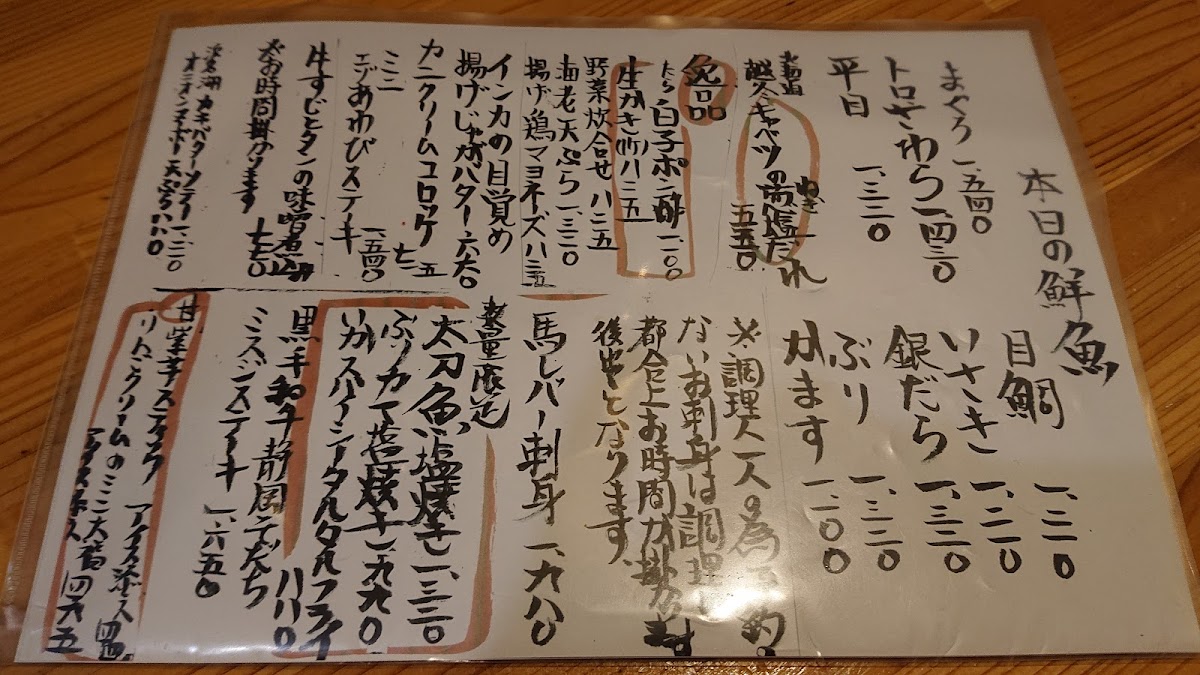 本日の鮮魚
まぐろ 一、五四〇
トロさわら 一、四三〇
平目 一、三二〇
目鯛 一、二一〇
いさき 一、二一〇
銀だら 一、三二〇
ぶり 一、三二〇
かます 一、一〇〇
北海道
越冬キャベツのねぎ塩だれ 五五〇
※調理人一人の為予約
ないお刺身は調理
都合上お時間が掛かります
後出しとなります。
逸品
たら白子ポン酢 一、一〇〇
生がき(1ケ) 八二五
野菜炊合せ 八二五
海老天ぷら 一、三二〇
揚げ鶏マヨネーズ 八二五
インカの目覚め
揚げじゃがバター 六六〇
カニクリームコロッケ 七一五
ミニ
エゾあわびステーキ 一、五四〇
牛すじとタンの味噌煮込み 七七〇
お時間掛かります
浜名湖カキバターソテー 一、三二〇
オニオンヌーボー天ぷら 八八〇
馬レバー刺身 一、九八〇
数量限定
太刀魚塩焼き 一、三二〇
ぶりカマ塩焼き 一、九九〇
いかスパーシータルタルフライ 八八〇
黒毛和牛静岡そだち
ミスジステーキ 一、六五〇
甘栗芋スティック アイス添え
りんごクリームのミニ大福 四九五